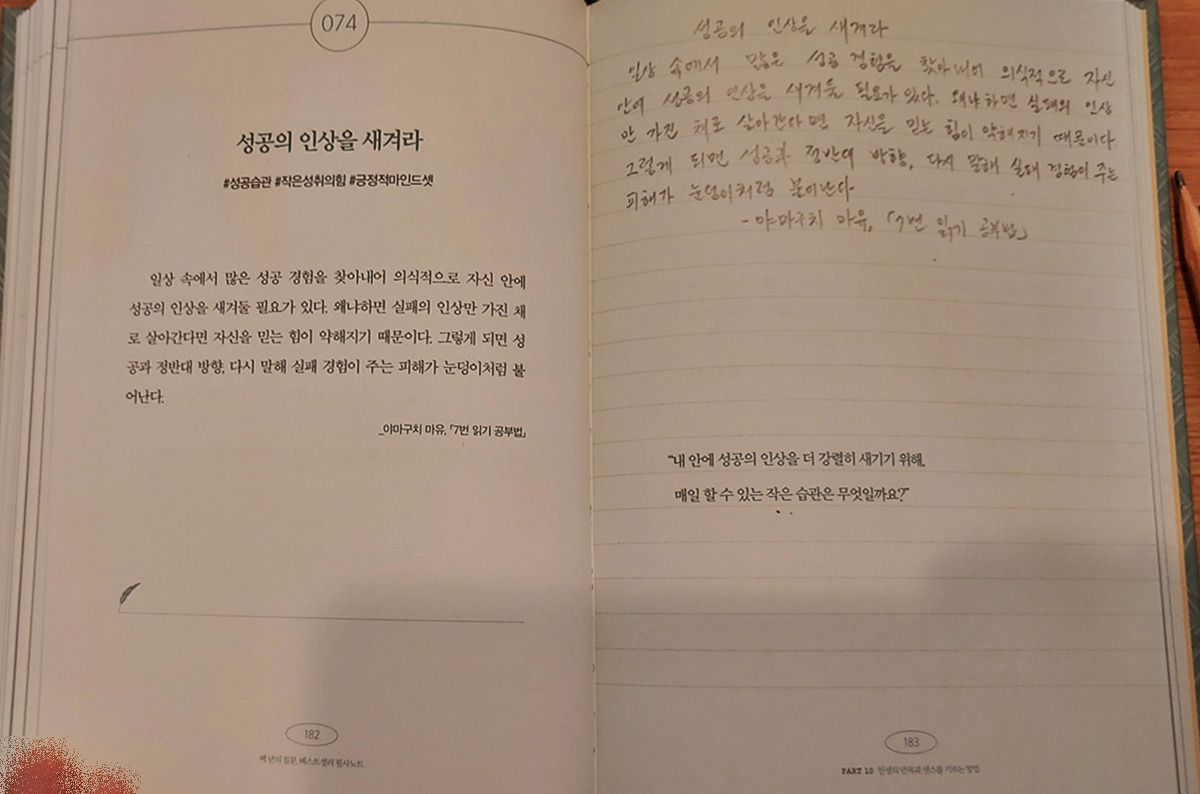 074
성공의 인상을 새겨라
#성공습관 #작은성취의힘 #긍정적마인드셋
일상 속에서 많은 성공 경험을 찾아내어 의식적으로 자신 안에
성공의 인상을 새겨둘 필요가 있다. 왜냐하면 실패의 인상만 가진 채
로 살아간다면 자신을 믿는 힘이 약해지기 때문이다. 그렇게 되면 성
공과 정반대 방향, 다시 말해 실패 경험이 주는 피해가 눈덩이처럼 불
어난다.
_야마구치 마유, 「7번 읽기 공부법」
182
백 년의 질문, 베스트셀러 필사노트
성공의 인상을 새겨라
일상 속에서 많은 성공 경험을 찾아내어 의식적으로 자신
안에 성공의 인상을 새겨둘 필요가 있다. 왜냐하면 실패의 인상
만 가진 채로 살아간다면 자신을 믿는 힘이 약해지기 때문이다
그렇게 되면 성공과 정반대 방향, 다시 말해 실패 경험이 주는
피해가 눈덩이처럼 불어난다
- 야마구치 마유, 「7번 읽기 공부법」
“내 안에 성공의 인상을 더 강렬히 새기기 위해,
매일 할 수 있는 작은 습관은 무엇일까요?”
183
PART 10 인생의 안목과 센스를 기르는 방법